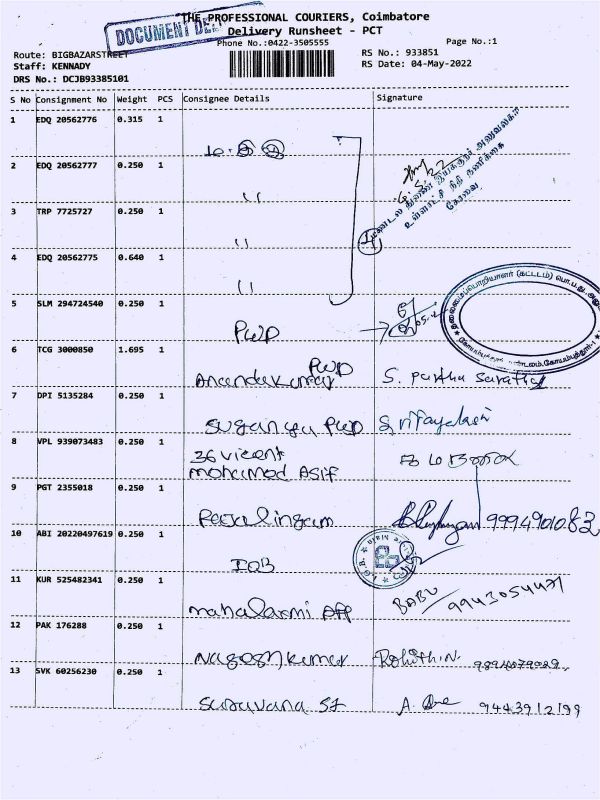 THE PROFESSIONAL COURIERS, Coimbatore
DOCUMENT DE
Delivery Runsheet - PCT
Phone No.:0422-3505555
Page No.:1
Route: BIGBAZARSTREET
RS No.: 933851
Staff: KENNADY
RS Date: 04-May-2022
DRS No.: DCJB93385101
S No Consignment No Weight PCS Consignee Details Signature
1 EDQ 20562776 0.315 1
2 EDQ 20562777 0.250 1
"
3 TRP 7725727 0.250 1
"
4 EDQ 20562775 0.640 1
"
உள்ளாட்சி நிதி தணிக்கை
கோவை
5 SLM 294724540 0.250 1
PWD
6 TCG 3000850 1.695 1
PWD
Anandakumar S. Partha Sarathy
7 DPI 5135284 0.250 1
Suganya PWD
8 VPL 939073483 0.250 1
36 Vicent
Mohamed Asif
9 PGT 2355018 0.250 1
9994901083
10 ABI 20220497619 0.250 1
IOB
11 KUR 525482341 0.250 1
Mahalaxmi
BABU 9943054471
12 PAK 176288 0.250 1
Nageshkumar Rohith.N.
13 SVK 60256230 0.250 1
Saravana St
9443912199